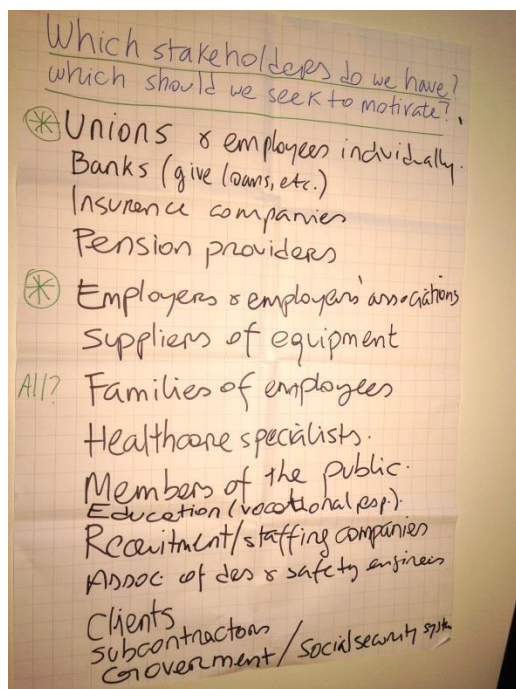 Which stakeholders do we have?
which should we seek to motivate?
* Unions & employees individually.
Banks (give loans, etc.)
Insurence companies
Pension providers
* Employers & employers' associations
Suppliers of equipment
All? Families of employees
Healthcare specialists.
Members of the public.
Education (vocational esp.)
Recruitment/staffing companies
Assoc of des & safety engineers
Clients
Subcontractors
Government/Social security system